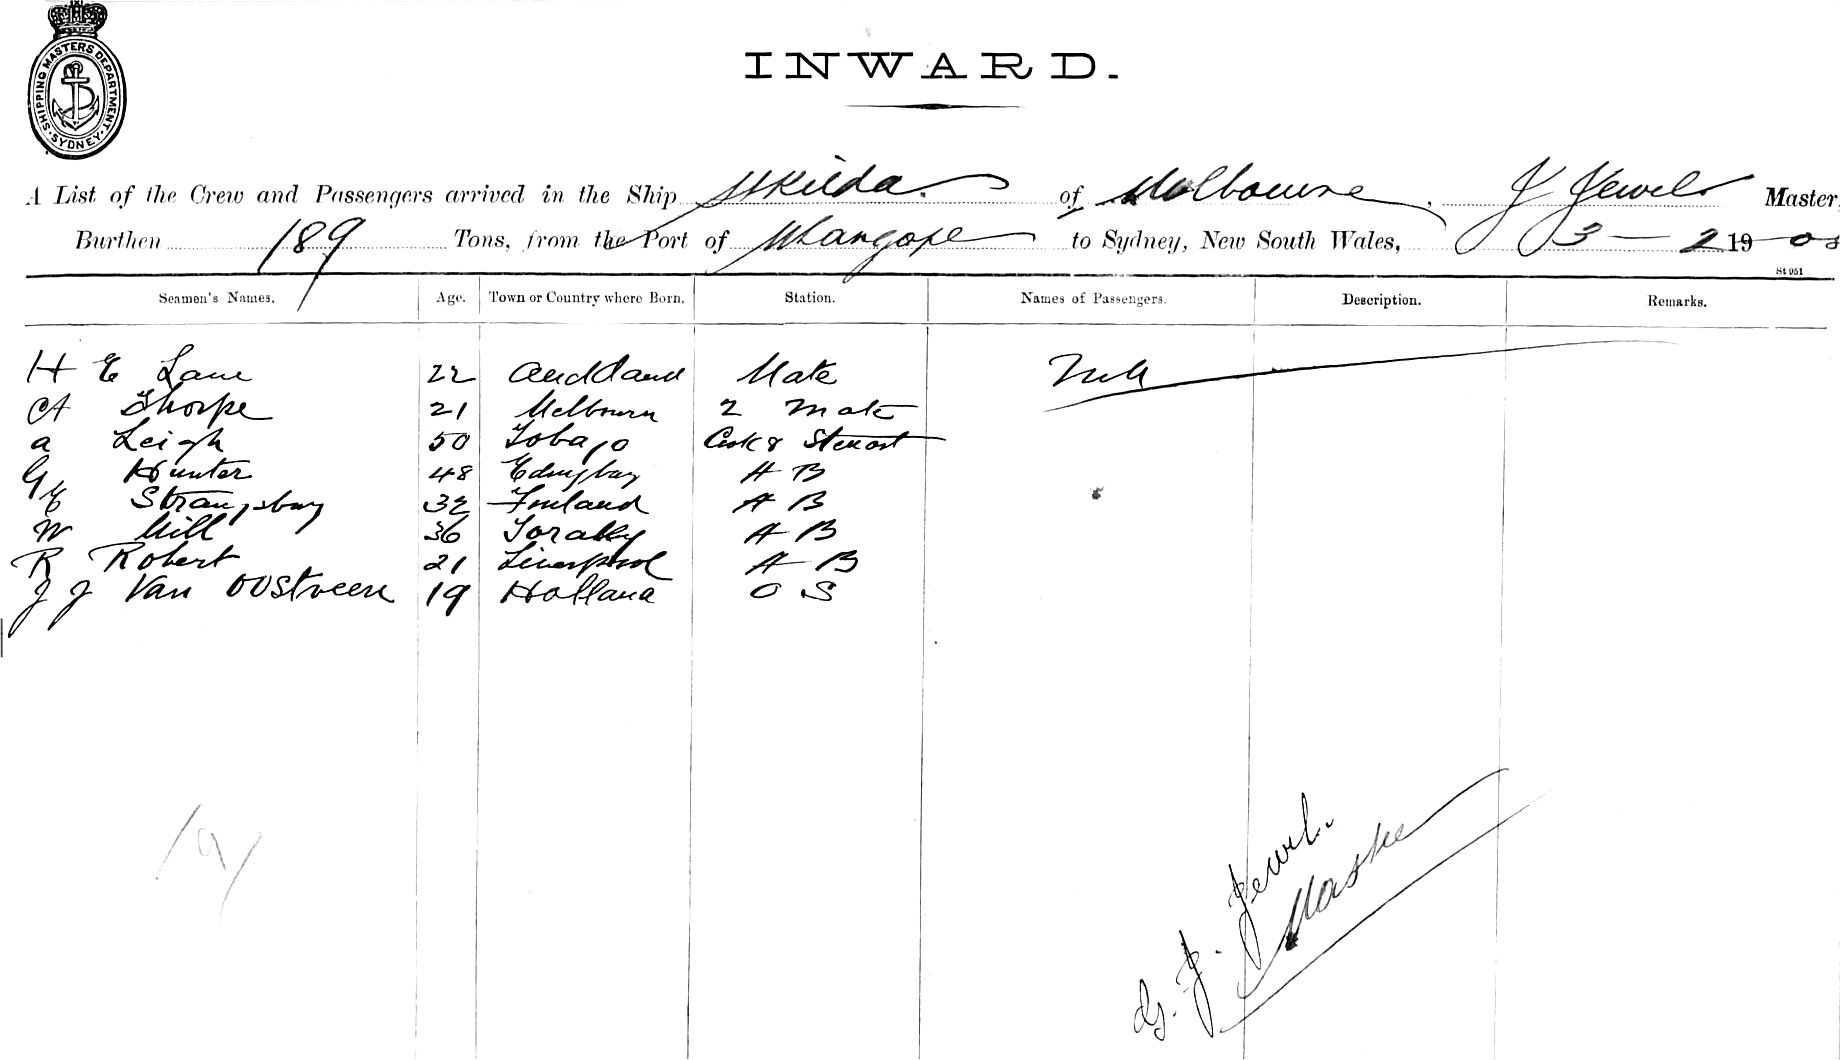 SHIPPING MASTERS DEPARTMENT. SYDNEY.
INWARD.
A List of the Crew and Passengers arrived in the Ship St Kilda. of Melbourne, J Jewels Master,
Burthen 189 Tons, from the Port of to Sydney, New South Wales, 3 - 2 19
St 951
Seamen's Names. Age. Town or Country where Born. Station. Names of Passengers. Description. Remarks.
H E Lane 22 Auckland Mate Nil
A Thorpe 21 Melbourn 2 Mate
A Leigh 50 Tobago Cook & Steuart
G Hunter 48 A B
E 32 Finland A B
W Mill 36 A B
R Robert 21 Liverpool A B
J J Van Oostveen 19 Holland O S
G. J. Jewel.
Master